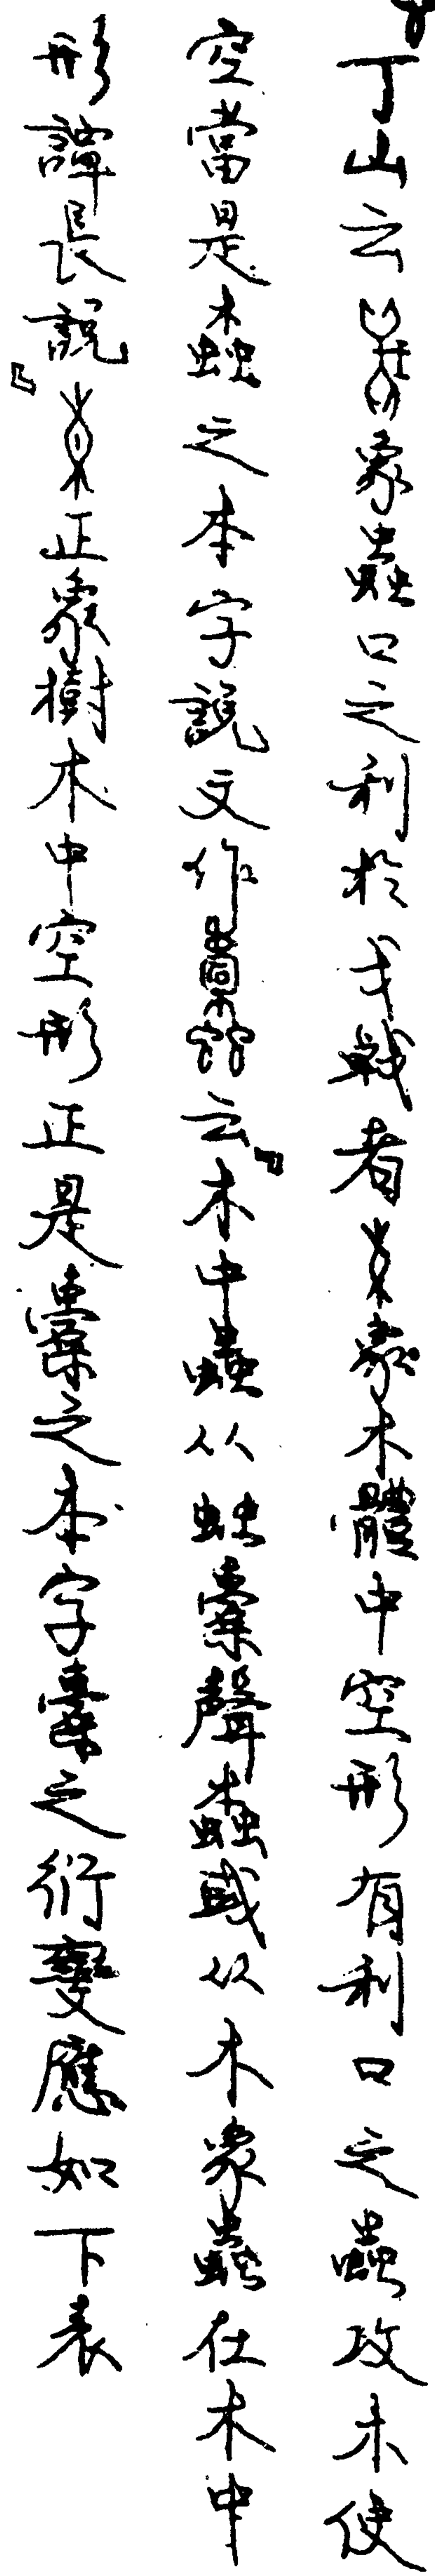 丁山云象蟲口之利於戈戟者象木體中空形有利口之蟲攻木使
空當是螙之本字説文作云「木中蟲从䖵橐聲螙或从木象蟲在木中
形譚長説」正象樹木中空形正是橐之本字橐之衍變應如下表